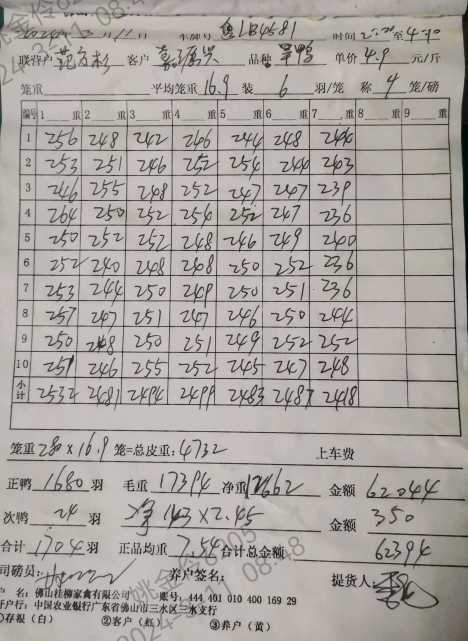 2024年3月11日 车牌号 粤LB4581 时间2:20至4:10
联营户 范 杉 客户 嘉 兴 品种 旱鸭 单价4.9元/斤
笼重 平均笼重16.9 装6羽/笼 称4笼/磅
编号 1 重 2 重 3 重 4 重 5 重 6 重 7 重 8 重 9 重
1 256 248 242 246 244 248 244
2 253 251 246 252 254 244 243
3 246 255 248 252 247 247 239
4 264 250 252 254 252 247 236
5 250 252 252 248 246 249 240
6 252 240 248 248 250 252 236
7 253 244 250 249 250 251 236
8 257 247 251 247 246 250 244
9 250 248 250 251 249 252 252
10 251 246 255 252 245 247 248
小计 2532 2481 2494 2499 2483 2487 2418
笼重280×16.9 笼=总皮重:4732 上车费
正鸭1680羽 毛重17394 净重12662 金额62044
次鸭24羽 净143×2.45 金额350
合计1704羽 正品均重7.54 合计总金额62394
司磅员: 养户签名: 提货人:
户 名:佛山桂柳家禽有限公司 账号:444 401 010 400 169 29
开户行:中国农业银行广东省佛山市三水区三水支行
①存根(白) ②客户(红) ③养户(黄)
姚金伶8005
2024-3-11 08:48